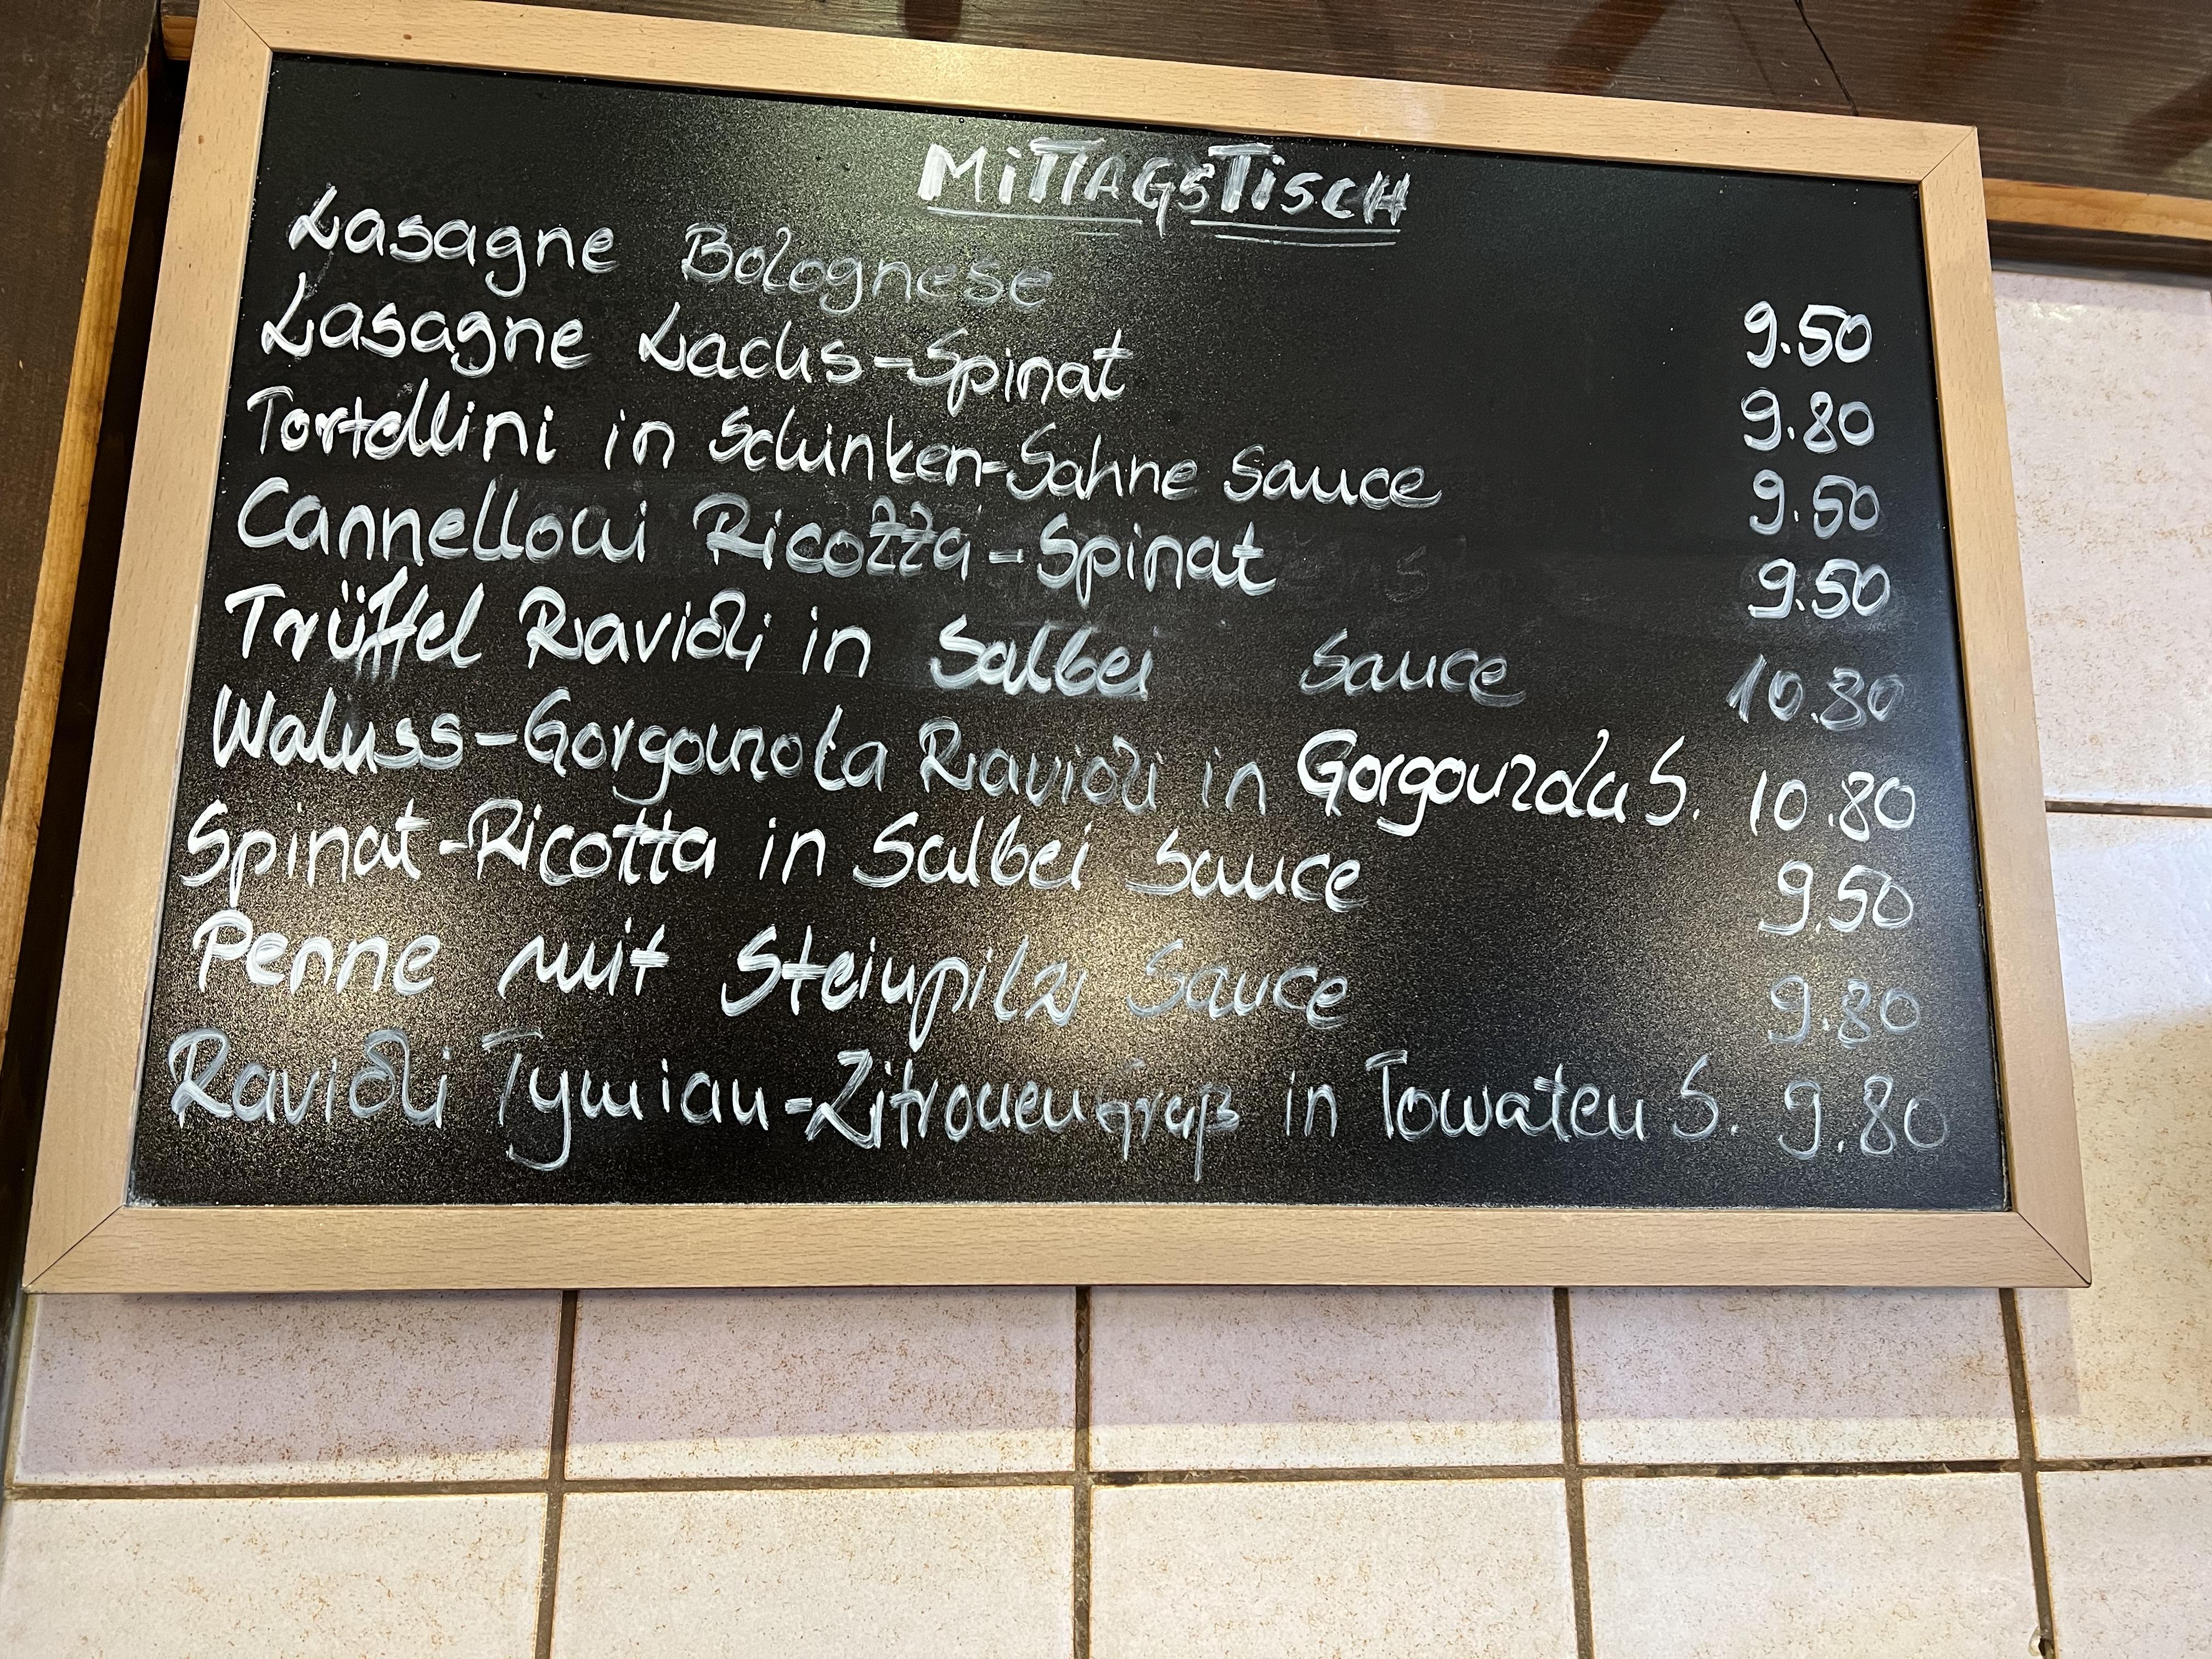 MiTTAGSTiSCH
Lasagne Bolognese 9.50
Lasagne Lachs-Spinat 9.80
Tortellini in Schinken-Sahne Sauce 9.50
Cannelloni Ricotta-Spinat 9.50
Trüffel Ravioli in Salbei Sauce 10.80
Walnuss-Gorgonzola Ravioli in Gorgonzola S. 10.80
Spinat-Ricotta in Salbei Sauce 9.50
Penne mit Steinpilz Sauce 9.80
Ravioli Tymian-Zitronen in Tomaten S. 9.80